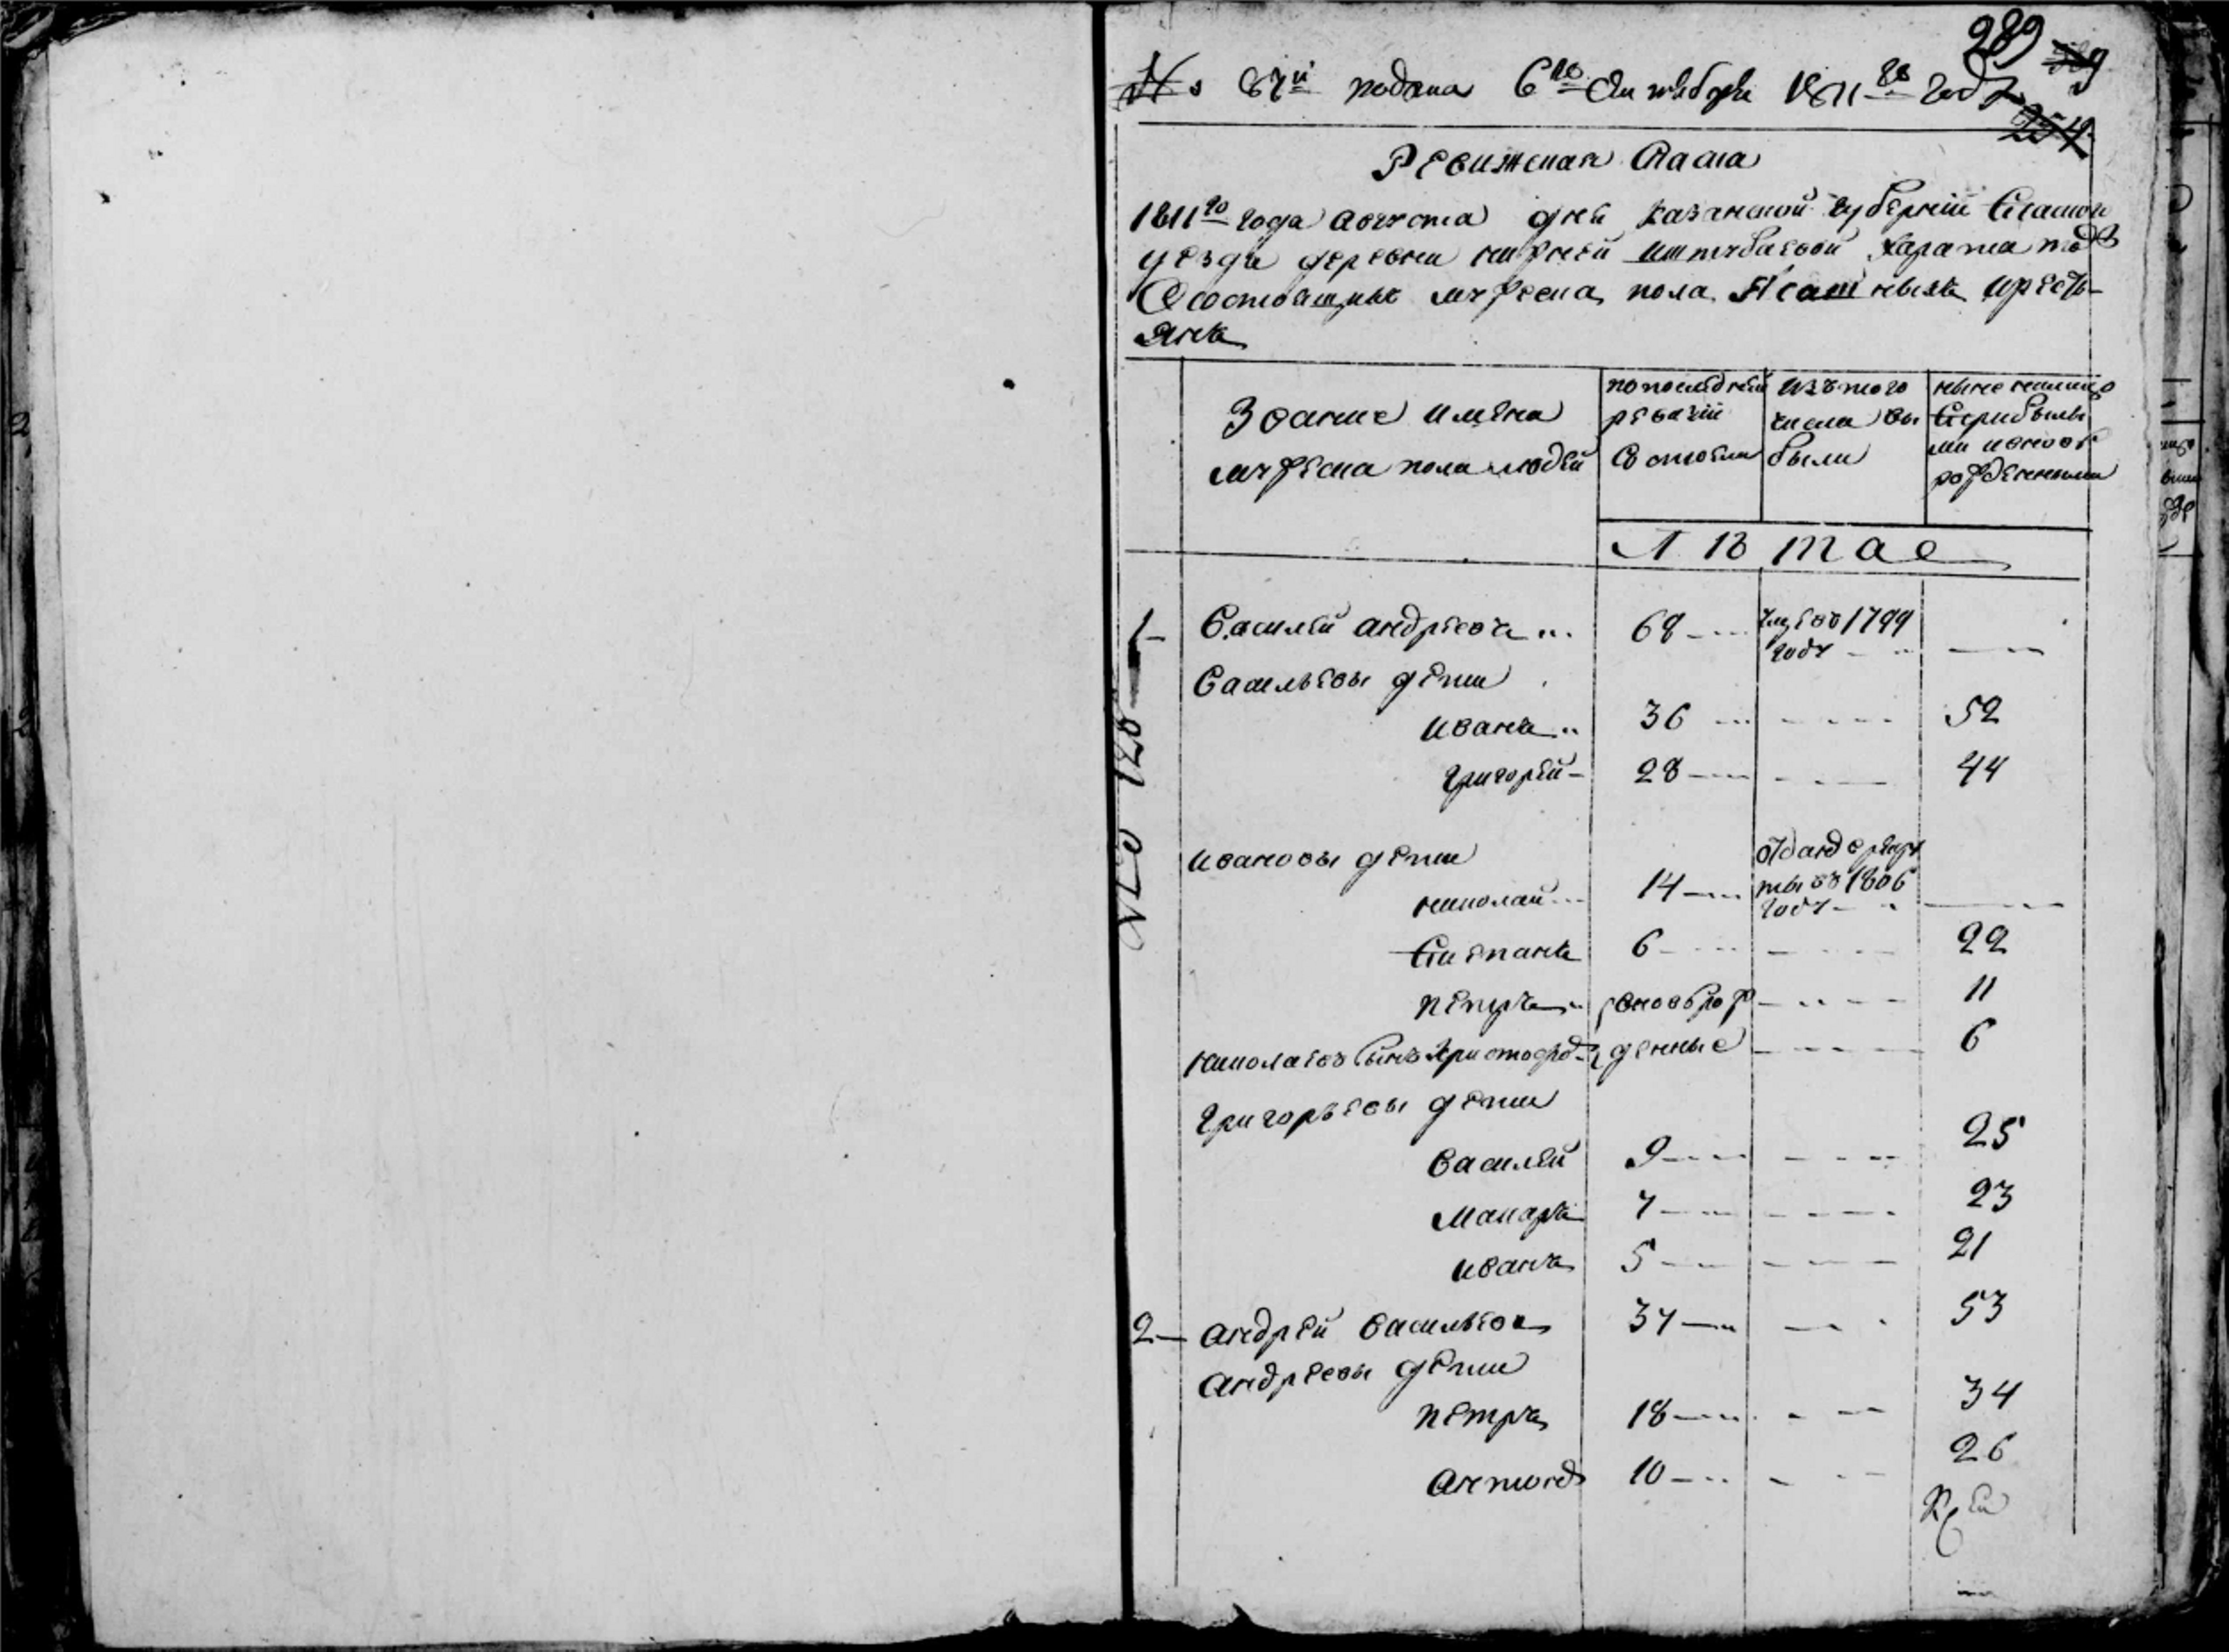 289
№ 87й подана 6го Октября 1811го года
254
Ревижская Скаска
1811го года августа дня казанской губернии Спаской
уезда деревни нижней иштубаевой карата тож
О состоящих мужеска пола ясашневых кресть-
янех
Звание имена
мужеска пола людей
по последней
ревизии
Состояли
изъ того
числа вы
были
ныне налицо
Сприбылы
ми и внов
рожденными
Лѣтае
1 Василей андреевъ .. 68 — умреъ в 1799
году — —
Васильевы дети
иванъ .. 36 — 52
григорей — 28 — 44
ивановы дети
николай — 14 — отдан в рекру
ты въ 1806
году —
Степанъ 6 — 22
петръ .. вновь рож 11
николаевъ сынъ христофоръ денные 6
григорьевы дети
василей 9 — 25
макаръ 7 — 23
иванъ 5 — 21
2 — андрей васильевъ 37 — 53
андреевы дети
петръ 18 — 34
антонъ 10 — 26